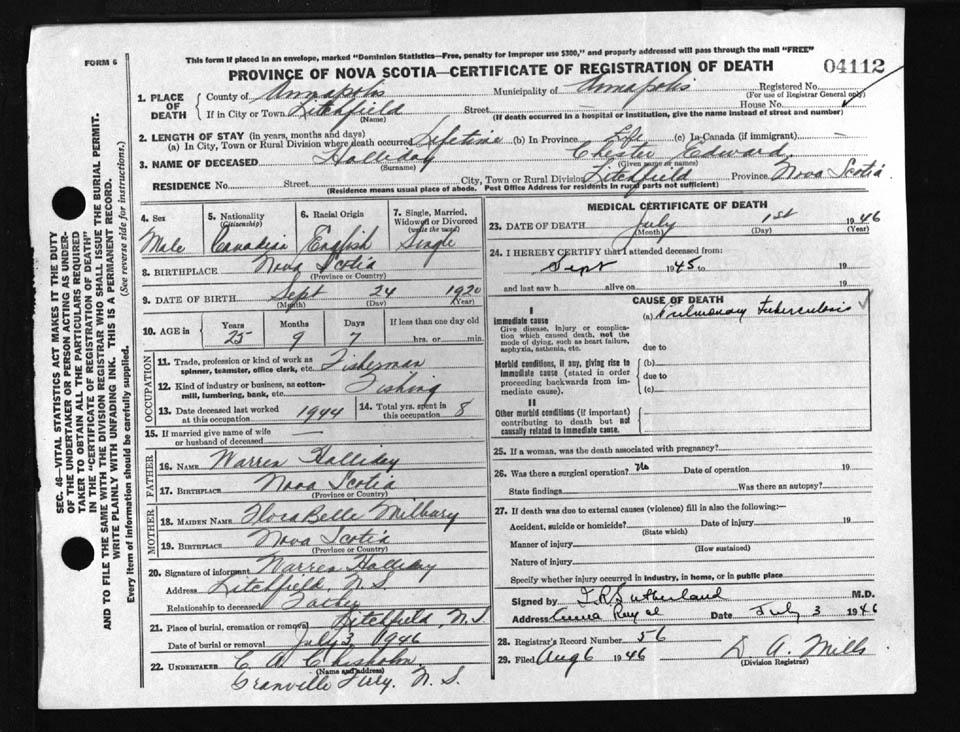 This form if placed in an envelope, marked "Dominion Statistics—Free, penalty for improper use $300," and properly addressed will pass through the mail "FREE"
FORM 6
PROVINCE OF NOVA SCOTIA—CERTIFICATE OF REGISTRATION OF DEATH
04112
1. PLACE OF DEATH
County of Annapolis Municipality of Annapolis Registered No.
(For use of Registrar General only)
If in City or Town Litchfield Street House No.
(Name) (If death occurred in a hospital or institution, give the name instead of street and number)
2. LENGTH OF STAY (in years, months and days)
(a) In City, Town or Rural Division where death occurred Lifetime (b) In Province Life (c) In Canada (if immigrant) —
3. NAME OF DECEASED Halliday Chester Edward
(Surname) (Given name or names)
RESIDENCE No. Street City, Town or Rural Division Litchfield Province Nova Scotia
(Residence means usual place of abode. Post Office Address for residents in rural parts not sufficient)
4. Sex
Male
5. Nationality
(Citizenship)
Canadian
6. Racial Origin
English
7. Single, Married, Widowed or Divorced
(write the word)
Single
8. BIRTHPLACE Nova Scotia
(Province or Country)
9. DATE OF BIRTH Sept 24 1920
(Month) (Day) (Year)
10. AGE in
Years Months Days If less than one day old
25 9 7 hrs. or min.
OCCUPATION
11. Trade, profession or kind of work as
spinner, teamster, office clerk, etc. Fisherman
12. Kind of industry or business, as cotton-
mill, lumbering, bank, etc. Fishing
13. Date deceased last worked
at this occupation 1944
14. Total yrs. spent in
this occupation 8
15. If married give name of wife
or husband of deceased —
FATHER
16. NAME Warren Halliday
17. BIRTHPLACE Nova Scotia
(Province or Country)
MOTHER
18. MAIDEN NAME Flora Belle Milbury
19. BIRTHPLACE Nova Scotia
(Province or Country)
20. Signature of informant Warren Halliday
Address Litchfield, N.S.
Relationship to deceased Father
21. Place of burial, cremation or removal Litchfield, N.S.
Date of burial or removal July 3, 1946
22. UNDERTAKER C. A. Chisholm
(Name and address)
Granville Ferry, N. S.
MEDICAL CERTIFICATE OF DEATH
23. DATE OF DEATH July 1st 1946
(Month) (Day) (Year)
24. I HEREBY CERTIFY that I attended deceased from:
Sept 1945 to 19
and last saw h alive on 19
CAUSE OF DEATH
I
Immediate cause
Give disease, injury or complica-
tion which caused death, not the
mode of dying, such as heart failure,
asphyxia, asthenia, etc.
(a) Pulmonary Tuberculosis
due to
Morbid conditions, if any, giving rise to
immediate cause (stated in order
proceeding backwards from im-
mediate cause).
(b)
due to
(c)
II
Other morbid conditions (if important)
contributing to death but not
causally related to immediate cause.
25. If a woman, was the death associated with pregnancy?
26. Was there a surgical operation? No Date of operation 19
State findings Was there an autopsy?
27. If death was due to external causes (violence) fill in also the following:—
Accident, suicide or homicide? Date of injury 19
(State which)
Manner of injury
(How sustained)
Nature of injury
Specify whether injury occurred in industry, in home, or in public place
Signed by Sutherland M.D.
Address Anna Royal Date July 3 1946
28. Registrar's Record Number 56
29. Filed Aug 6 1946 D A. Mills
(Division Registrar)
SEC. 46—VITAL STATISTICS ACT MAKES IT THE DUTY
OF THE UNDERTAKER OR PERSON ACTING AS UNDER-
TAKER TO OBTAIN ALL THE PARTICULARS REQUIRED
IN THE "CERTIFICATE OF REGISTRATION OF DEATH"
AND TO FILE THE SAME WITH THE DIVISION REGISTRAR WHO SHALL ISSUE THE BURIAL PERMIT.
WRITE PLAINLY WITH UNFADING INK. THIS IS A PERMANENT RECORD.
Every item of information should be carefully supplied. (See reverse side for instructions.)